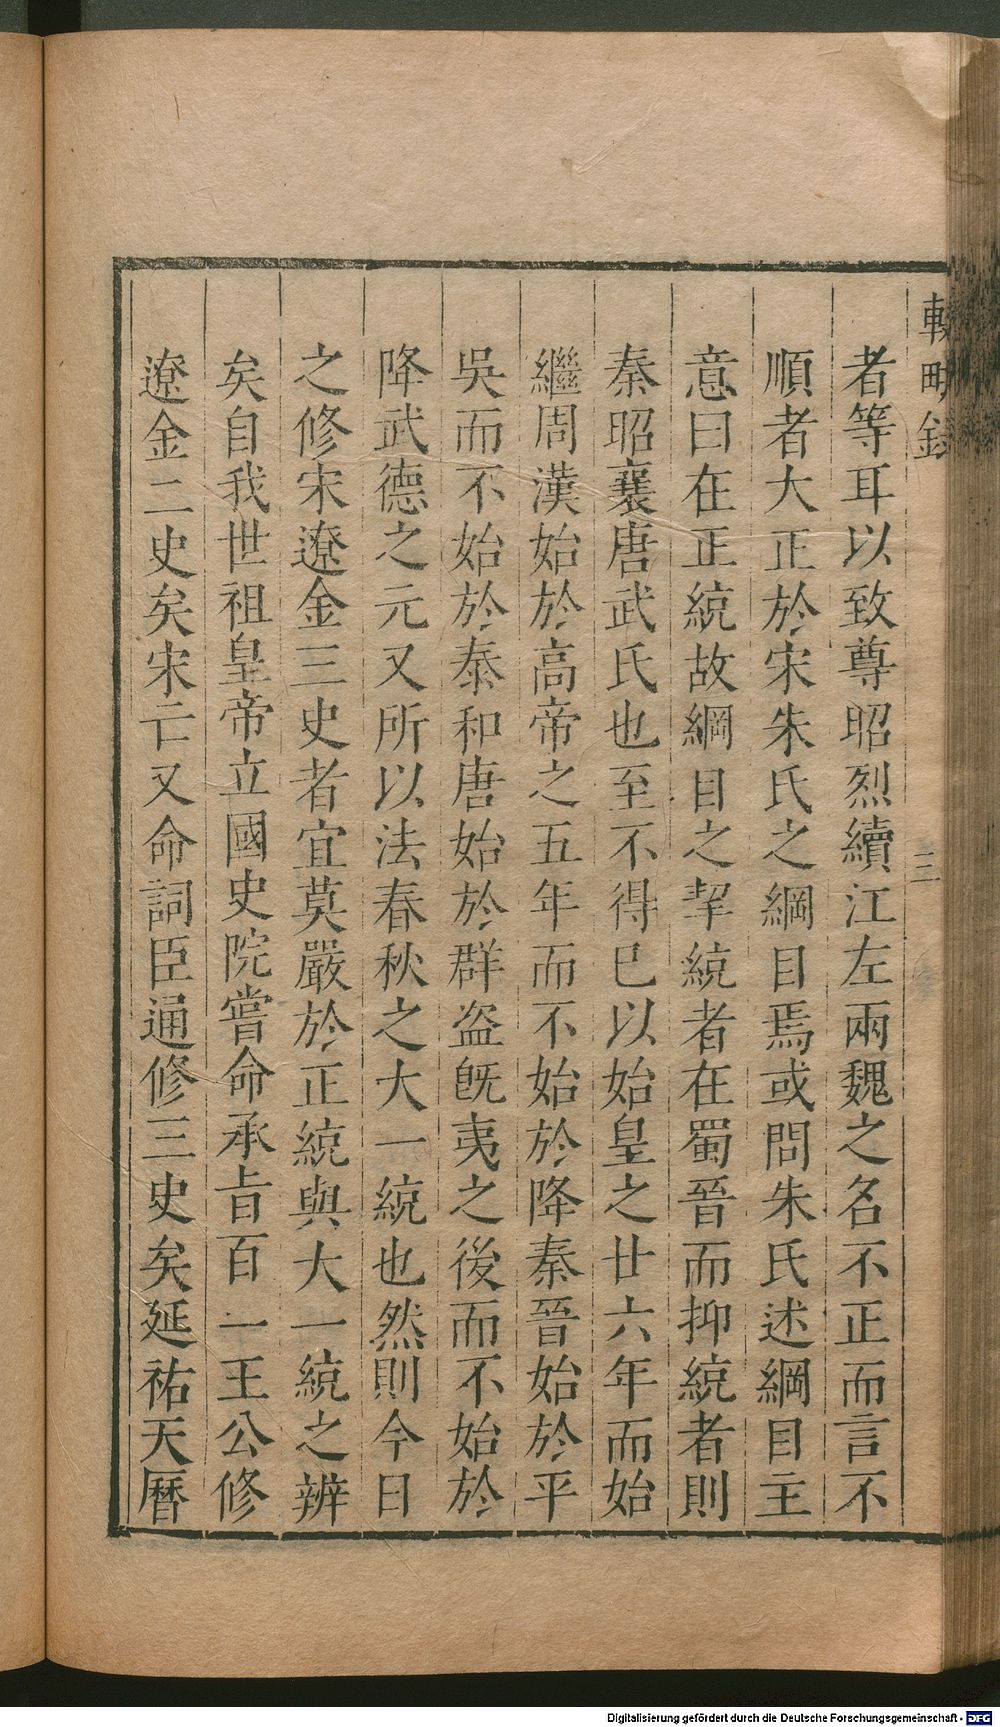 輟耕錄
三
者等耳以致尊昭烈續江左兩魏之名不正而言不
順者大正於宋朱氏之綱目焉或問朱氏述綱目主
意曰在正統故綱目之挈統者在蜀晉而抑統者則
秦昭襄唐武氏也至不得已以始皇之廿六年而始
繼周漢始於高帝之五年而不始於降秦晉始於平
吳而不始於泰和唐始於群盜旣夷之後而不始於
降武德之元又所以法春秋之大一統也然則今日
之修宋遼金三史者宜莫嚴於正統與大一統之辨
矣自我世祖皇帝立國史院嘗命承旨百一王公修
遼金二史矣宋亡又命詞臣通修三史矣延祐天曆
Digitalisierung gefördert durch die Deutsche Forschungsgemeinschaft - DFG